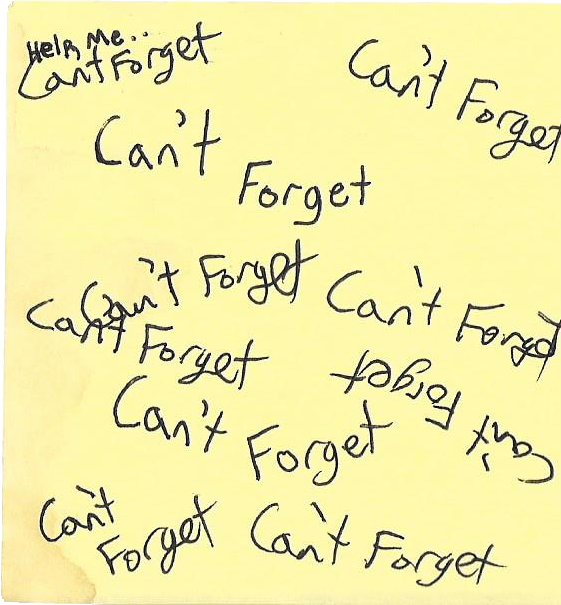 Help Me..
Can't Forget
Can't Forget
Can't Forget
Can't Forget
Can't Forget
Can't Forget
Can't Forget
Can't Forget
Can't Forget
Can't Forget